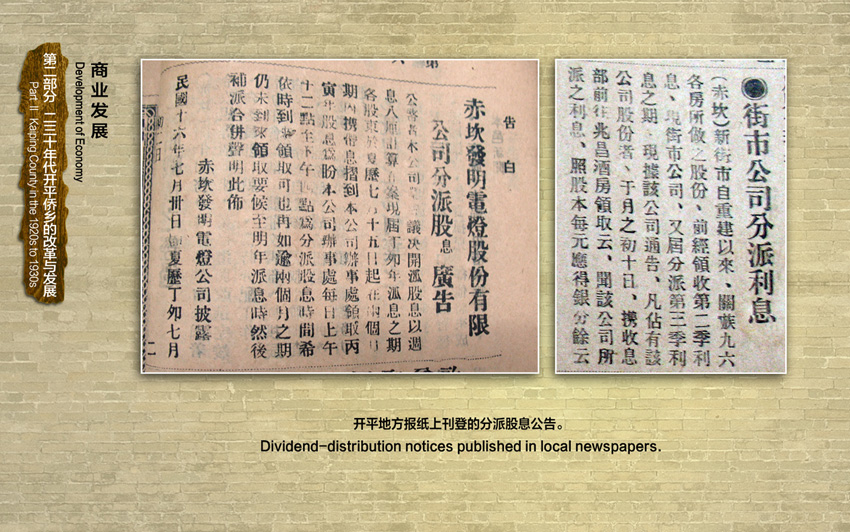 商业发展
Development of Economy
第二部分 二三十年代开平侨乡的改革与发展
Part II Kaiping County in the 1920s to 1930s
告白
赤坎發明電燈股份有限
公司分派股息廣告
議決開派股息以週
息八厘計算在案現屆丁卯年派息之期
各股東於夏歷七月十五日起在兩個月
期內携帶息摺到本公司辦事處領取丙
寅年股息為盼本公司辦事處每日上午
十二點至下午四點為分派股息時間希
依時到來領取可也再如逾兩個月之期
仍未到來領取要候至明年派息時然後
補派合併聲明此佈
赤坎發明電燈公司披露
民國十六年七月卅日 夏歷丁卯七月
●街市公司分派利息
(赤坎)新街市自重建以來、關族九六
各房所做之股份、前經領收第二季利
息、現街市公司、又屆分派第三季利
息之期、現據該公司通告、凡佔有該
公司股份者、于月之初十日、携收息
部前往兆昌酒房領取云、聞該公司所
派之利息、照股本每元應得銀 分餘云
开平地方报纸上刊登的分派股息公告。
Dividend-distribution notices published in local newspapers.